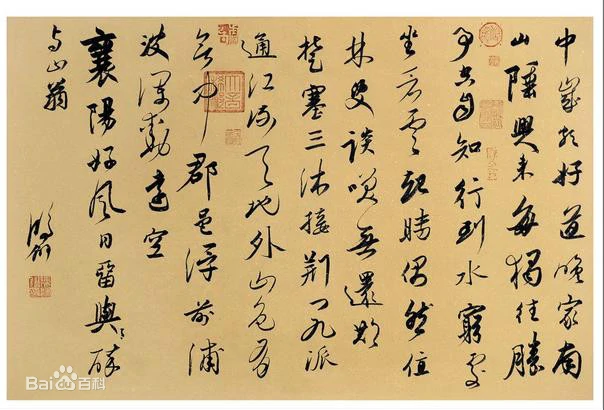 中歲頗好道晚家南
山陲興來每獨往勝
事空自知行到水窮處
坐看雲起時偶然值
林叟談笑無還期
楚塞三湘接荊門九派
通江流天地外山色有
無中郡邑浮前浦
波瀾動遠空
襄陽好風日留與醉
与山翁
Bai百科